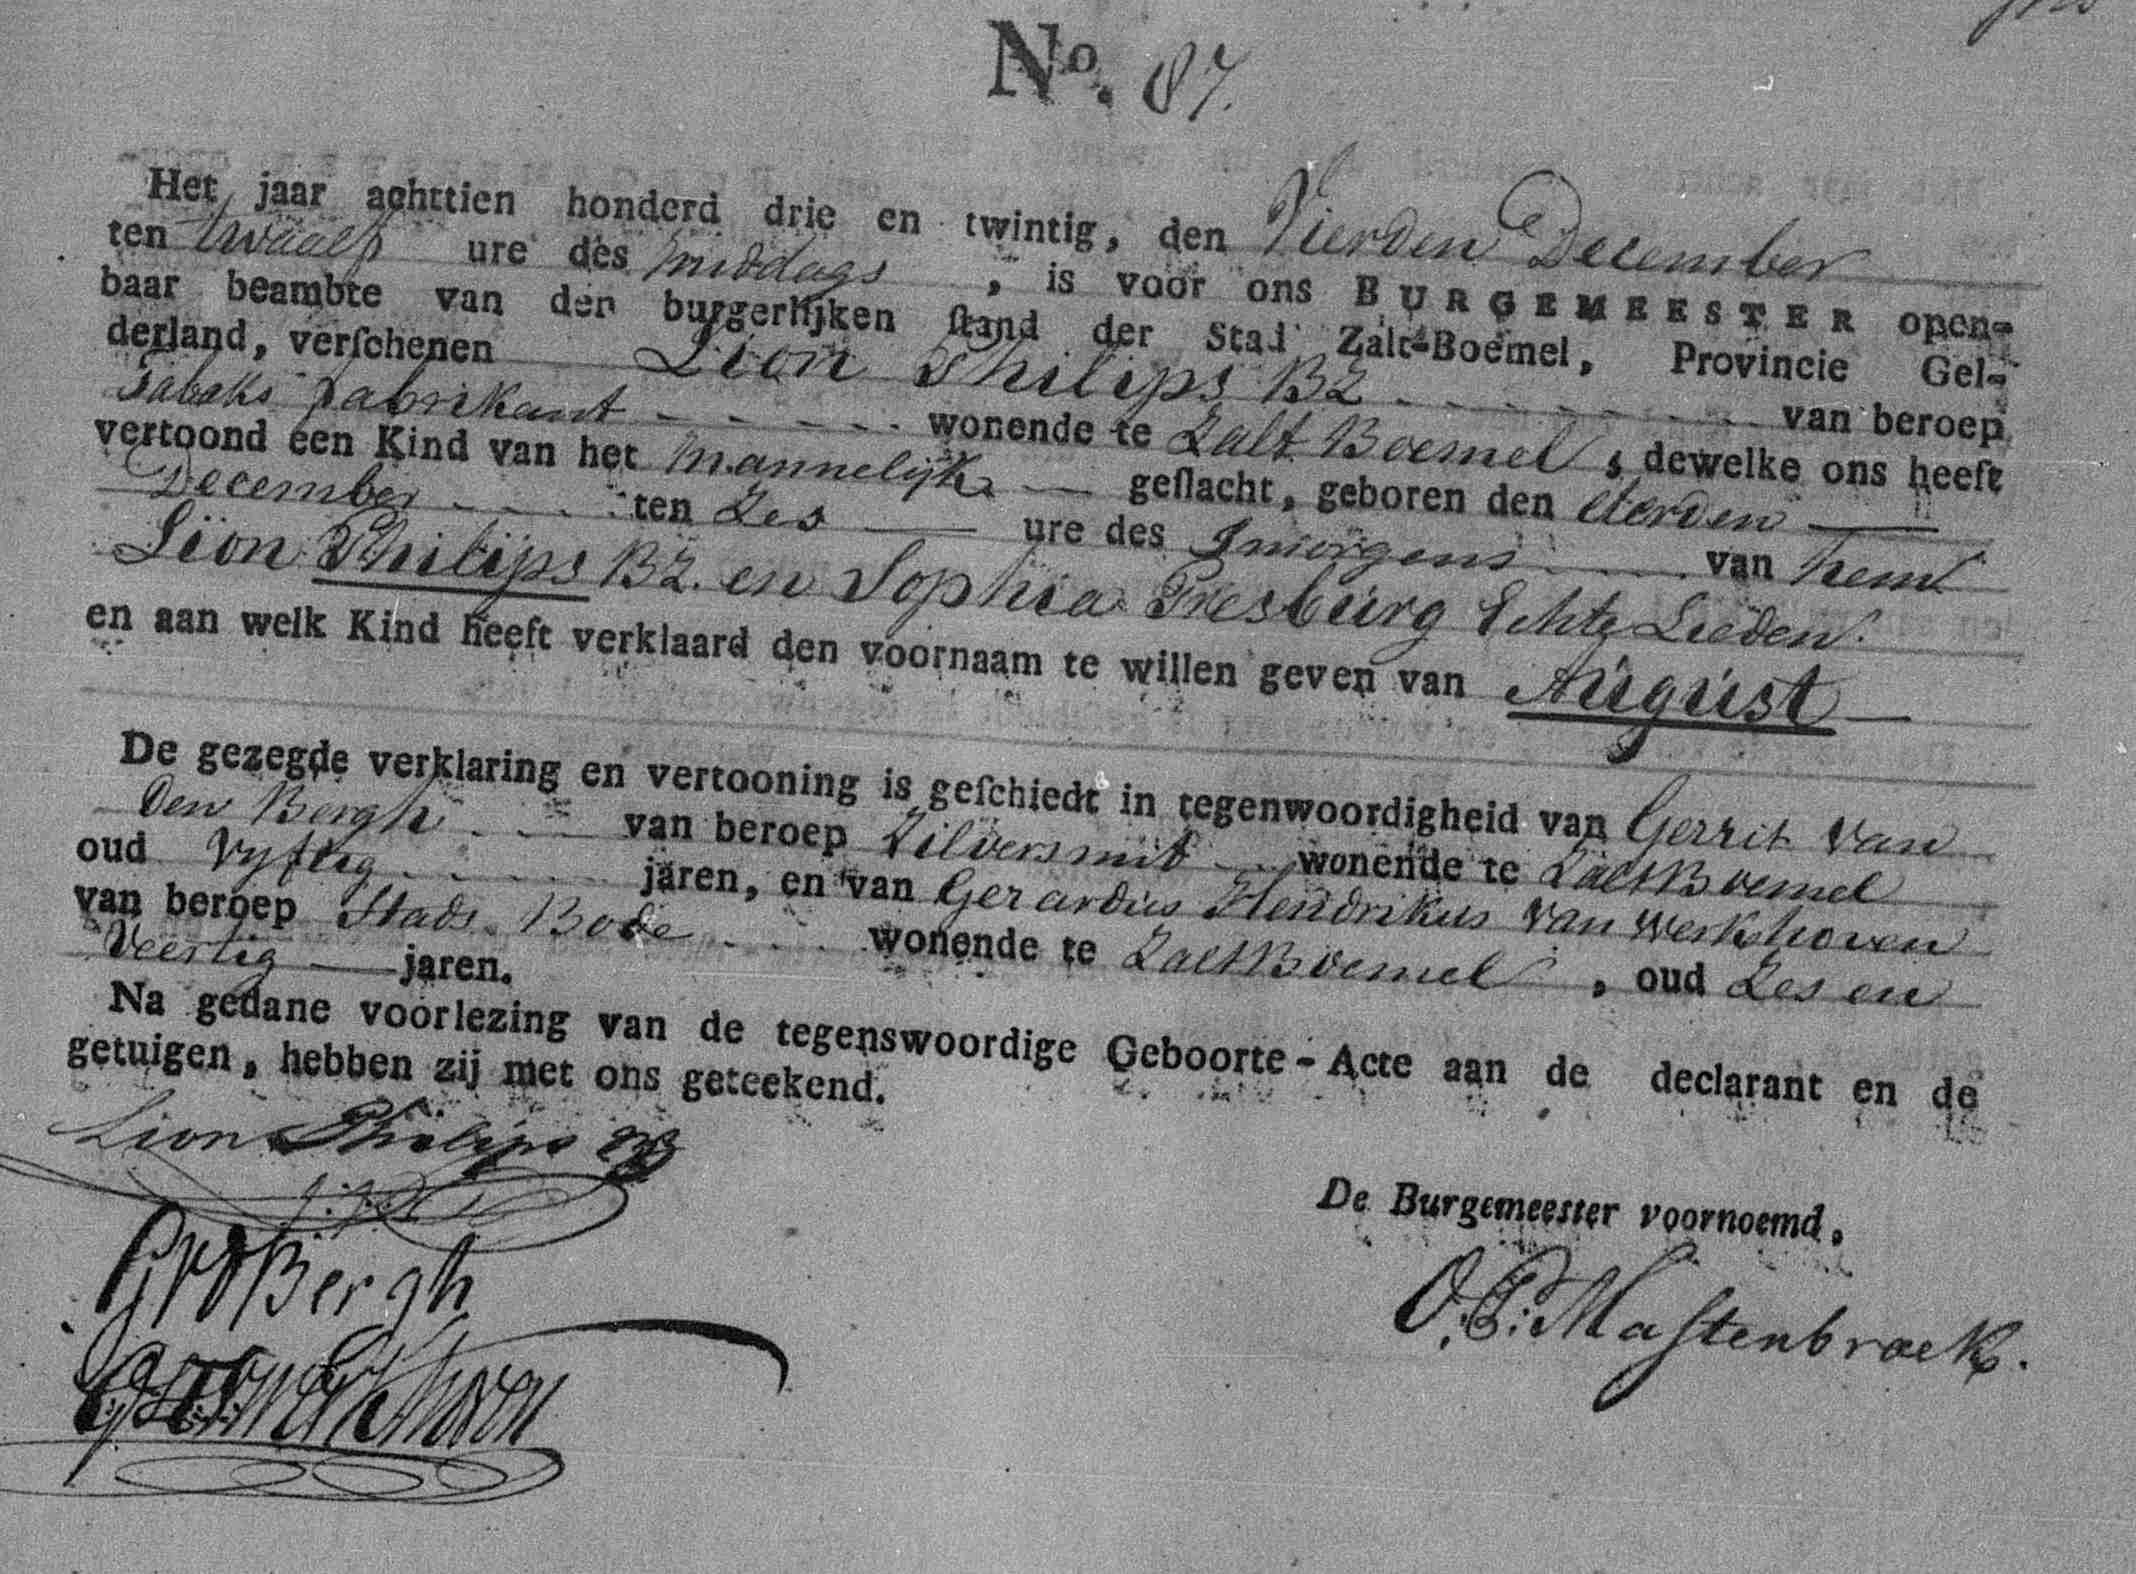 No. 87.
Het jaar achttien honderd drie en twintig, den Vierden December
ten twaalf ure des middags, is voor ons BURGEMEESTER open-
baar beambte van den burgerlijken ſtand der Stad Zalt-Boemel, Provincie Gel-
derland, verſchenen Lion Philips BZ van beroep
Tabaks fabrikant wonende te Zalt Boemel, dewelke ons heeft
vertoond een Kind van het mannelijk geſlacht, geboren den eersten
December ten Zes ure des smorgens van hem
Lion Philips BZ. en Sophia Presburg Echte Lieden.
en aan welk Kind heeft verklaard den voornaam te willen geven van August
De gezegde verklaring en vertooning is geſchiedt in tegenwoordigheid van Gerrit van
den Bergh van beroep Zilversmit wonende te ZaltBoemel
oud Vyftig jaren, en van Gerardus Hendrikus van Werkhoven
van beroep Stads Bode wonende te ZaltBoemel, oud Zes en
Veertig jaren.
Na gedane voorlezing van de tegenswoordige Geboorte-Acte aan de declarant en de
getuigen, hebben zij met ons geteekend.
Lion Philips
De Burgemeester voornoemd,
GvdBergh
Maſtenbroek.